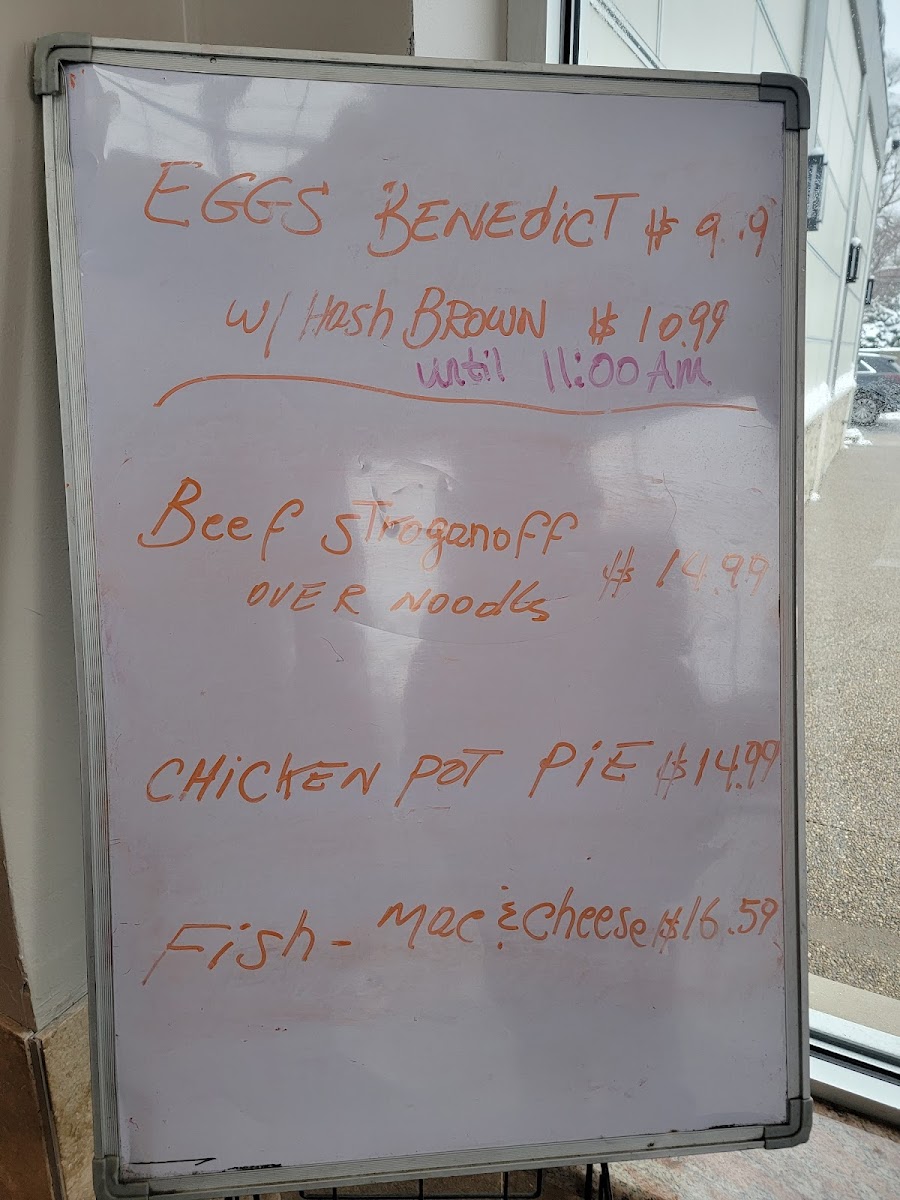 EGGS BENEdicT $ 9.
w/ Hash BROWN $ 10.99
until 11:00 AM
Beef sTroganoff
OVER NOOdles $ 14.99
CHiCKEN POT PiE $14.99
Fish - Mac & Cheese $16.59